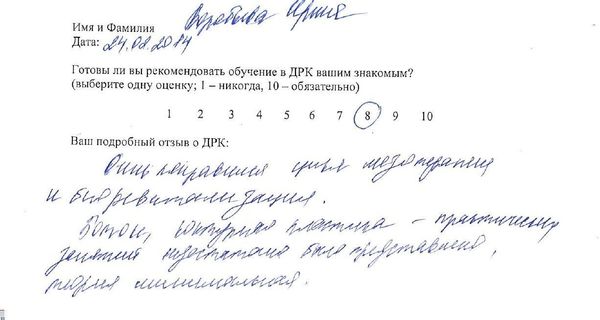 Имя и Фамилия Воробьева Ирина
Дата: 24.08.2014
Готовы ли вы рекомендовать обучение в ДРК вашим знакомым?
(выберите одну оценку; 1 – никогда, 10 – обязательно)
1 2 3 4 5 6 7 8 9 10
Ваш подробный отзыв о ДРК:
Очень понравился цикл мезотерапия
и биоревитализация.
Ботокс, контурная пластика – практических
занятий недостаточно было представлено,
теория минимальная.